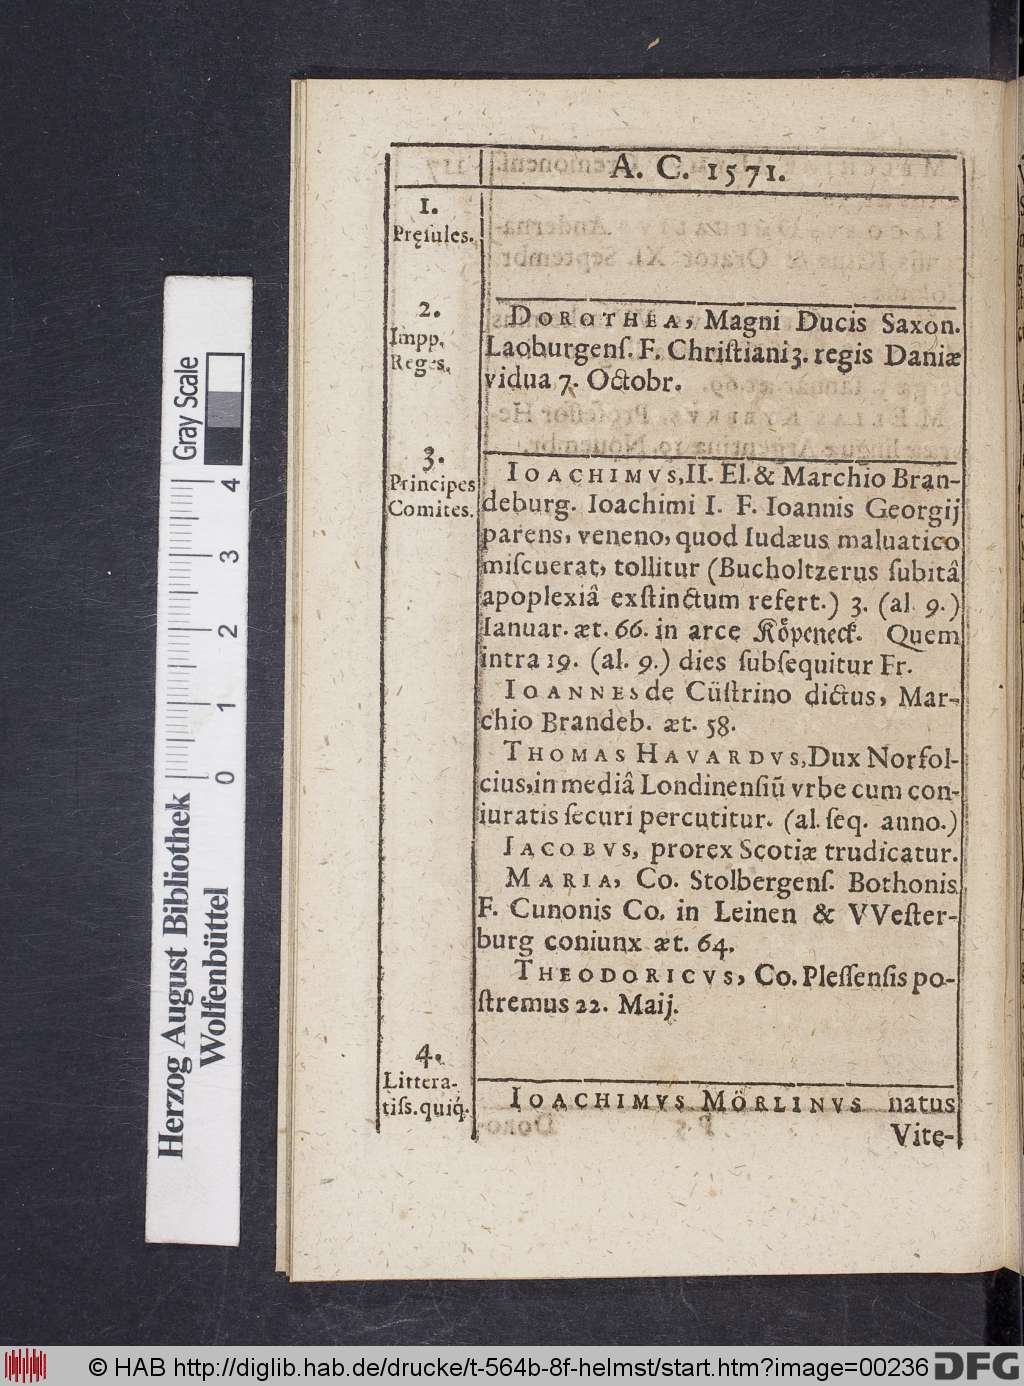 A. C. 1571.
1.
Pręſules.
2.
Impp.
Reges.
DOROTHEA, Magni Ducis Saxon.
Laoburgenſ. F. Chriſtiani 3. regis Daniæ
vidua 7. Octobr.
3.
Principes
Comites.
IOACHIMVS, II. El. & Marchio Bran-
deburg. Ioachimi I. F. Ioannis Georgij
parens, veneno, quod Iudæus maluatico
miſcuerat, tollitur (Bucholtzerus ſubitâ
apoplexiâ exſtinctum refert.) 3. (al. 9.)
Ianuar. æt. 66. in arce Köpeneck. Quem
intra 19. (al. 9.) dies ſubſequitur Fr.
IOANNES de Cüſtrino dictus, Mar-
chio Brandeb. æt. 58.
THOMAS HAVARDVS, Dux Norfol-
cius, in mediâ Londinenſiū vrbe cum con-
iuratis ſecuri percutitur. (al. ſeq. anno.)
IACOBVS, prorex Scotiæ trudicatur.
MARIA, Co. Stolbergenſ. Bothonis
F. Cunonis Co. in Leinen & VVeſter-
burg coniunx æt. 64.
THEODORICVS, Co. Pleſſenſis po-
ſtremus 22. Maij.
4.
Littera-
tiſſ. quiq́.
IOACHIMVS MÖRLINVS natus
Vite-
Gray Scale
0 1 2 3 4
Herzog August Bibliothek
Wolfenbüttel
© HAB http://diglib.hab.de/drucke/t-564b-8f-helmst/start.htm?image=00236
DFG